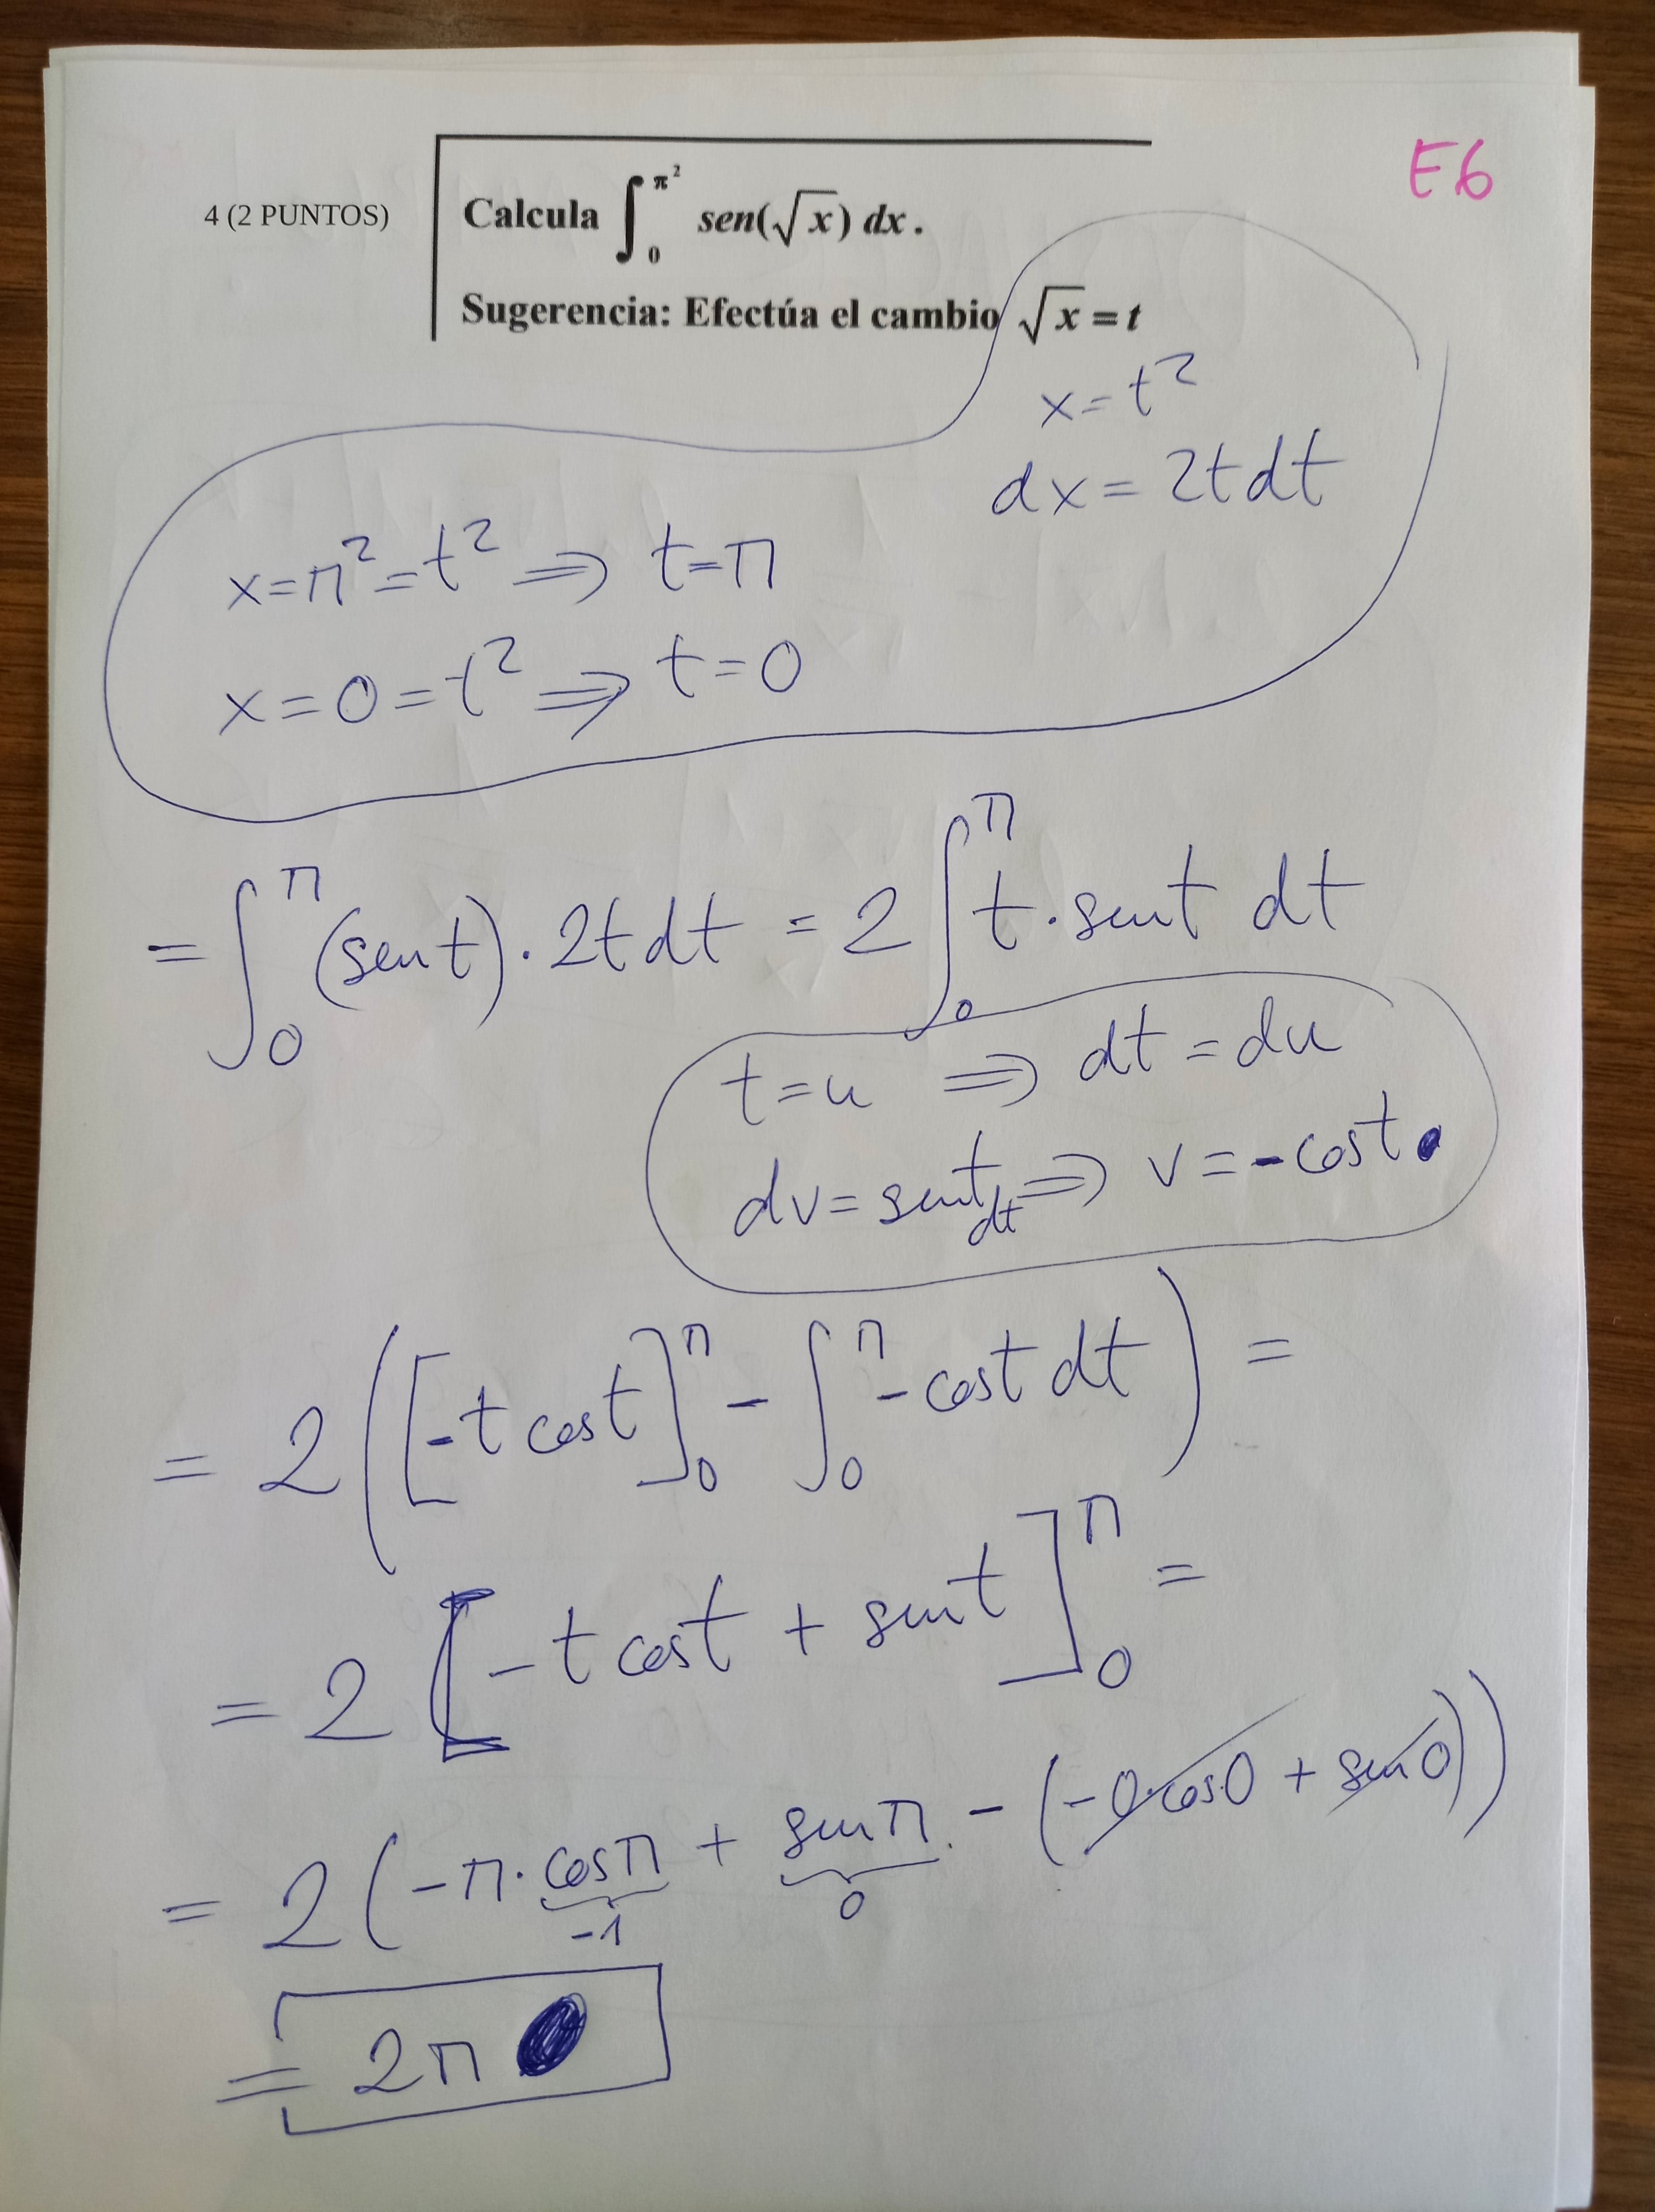 E6
4 (2 PUNTOS)
Calcula ∫₀^π² sen(√x) dx.
Sugerencia: Efectúa el cambio √x = t
x = t²
dx = 2t dt
x = π² = t² ⇒ t = π
x = 0 = t² ⇒ t = 0
= ∫₀^π (sen t) · 2t dt = 2 ∫₀^π t · sen t dt
t = u ⇒ dt = du
dv = sen t dt ⇒ v = -cos t
= 2 ([-t cos t]₀^π - ∫₀^π -cos t dt) =
= 2 [-t cos t + sen t]₀^π =
= 2 (-π · cos π + sen π - (-0·cos 0 + sen 0))
-1 0
= 2π